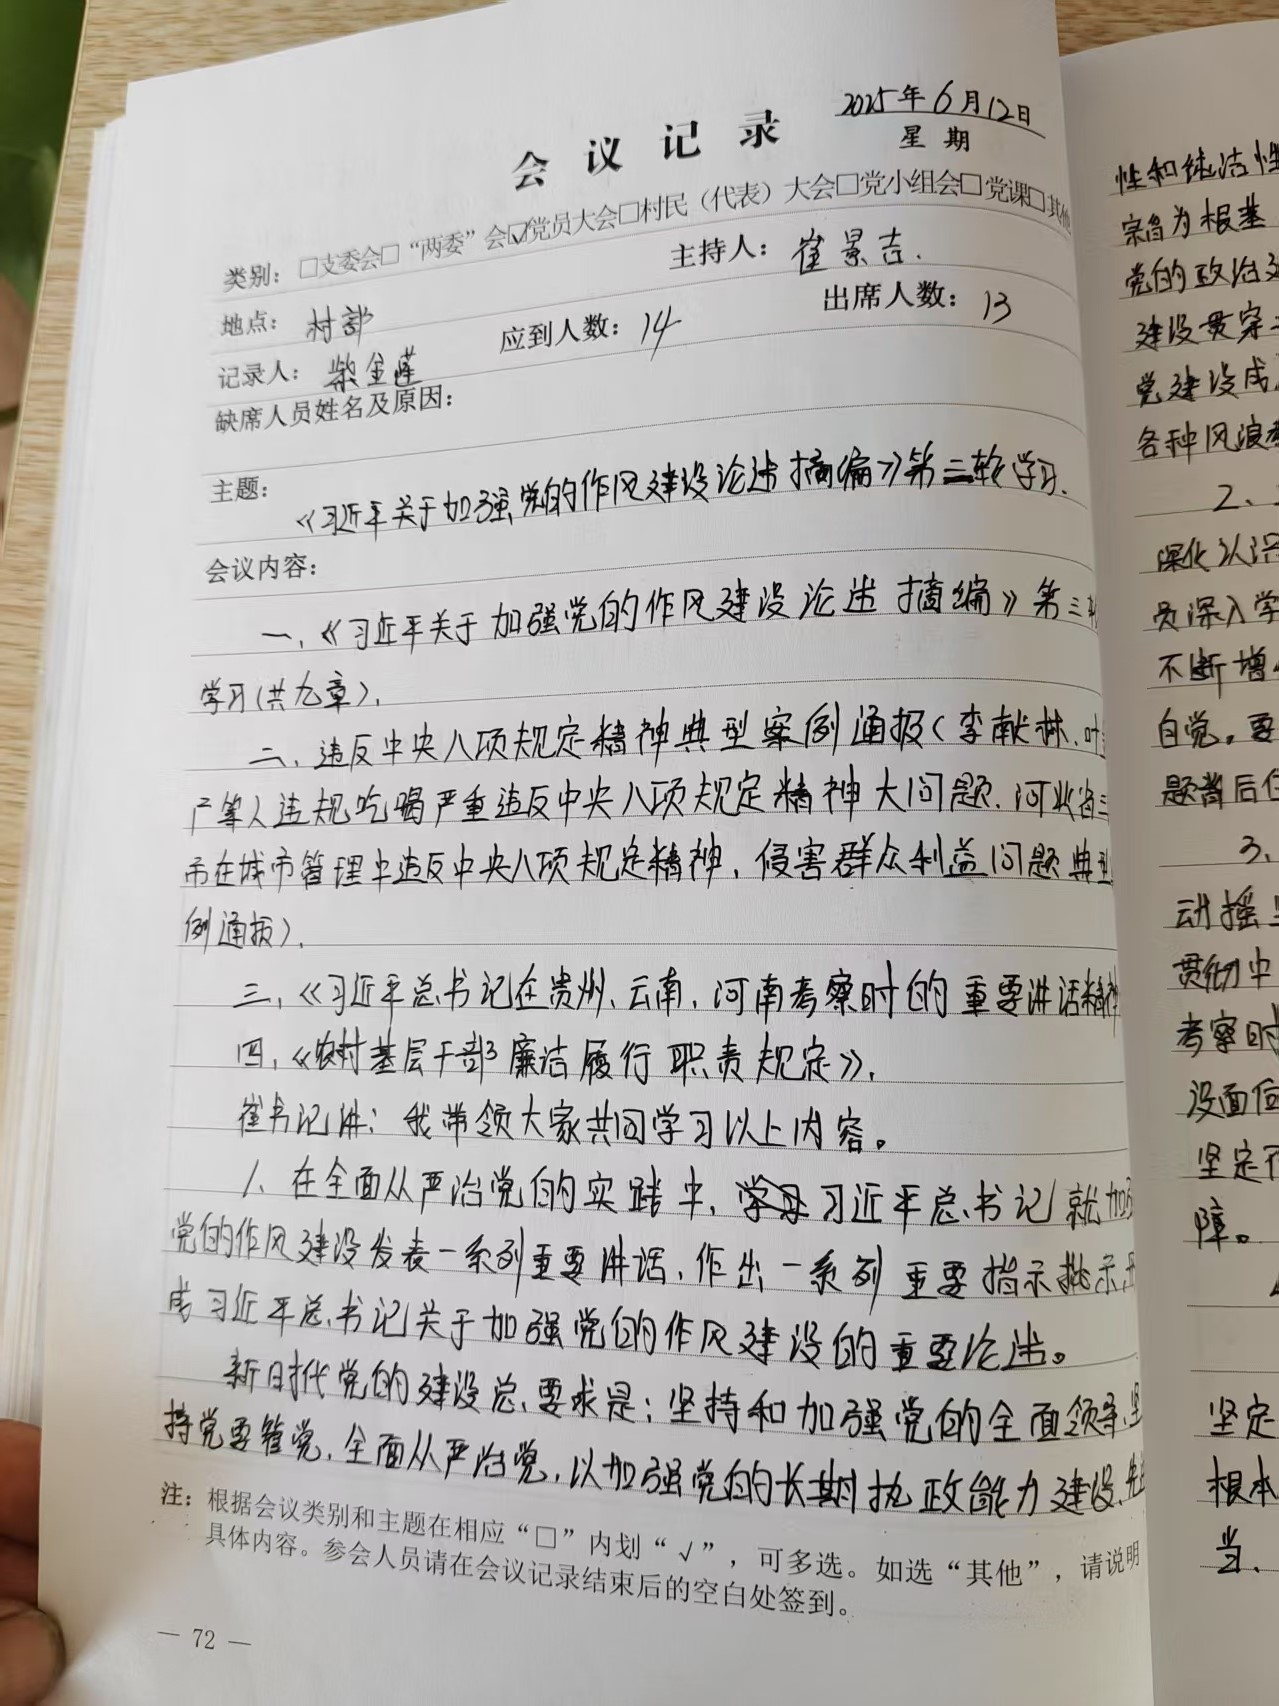 会议记录
2025年6月12日
星期
类别：□支委会□“两委”会☑党员大会□村民（代表）大会□党小组会□党课□其他
地点：村部
主持人：崔景吉.
记录人：柴金莲
应到人数：14
出席人数：13
缺席人员姓名及原因：
主题：
《习近平关于加强党的作风建设论述摘编》第三轮学习.
会议内容：
一、《习近平关于加强党的作风建设论述摘编》第三
学习(共九章).
二、违反中央八项规定精神典型案例通报(李献林、叶
产等人违规吃喝严重违反中央八项规定精神大问题.河北省三
市在城市管理中违反中央八项规定精神、侵害群众利益问题典型
例通报).
三、《习近平总书记在贵州、云南、河南考察时的重要讲话精神
四、《农村基层干部廉洁履行职责规定》.
崔书记讲：我带领大家共同学习以上内容。
1、在全面从严治党的实践中，习近平总书记就加强
党的作风建设发表一系列重要讲话、作出一系列重要指示批示形
成习近平总书记关于加强党的作风建设的重要论述。
新时代党的建设总要求是：坚持和加强党的全面领导、坚
持党要管党、全面从严治党、以加强党的长期执政能力建设、先
注：根据会议类别和主题在相应“□”内划“√”，可多选。如选“其他”，请说明
具体内容。参会人员请在会议记录结束后的空白处签到。
— 72 —
性和纯洁性
宗旨为根基
党的政治建
建设贯穿
党建设成
各种风浪考
2、
深化认识
员深入学
不断增
自觉。要
题背后
3、
动摇
贯彻中
考察时
没面
坚定不
障。
坚定
根本
当.